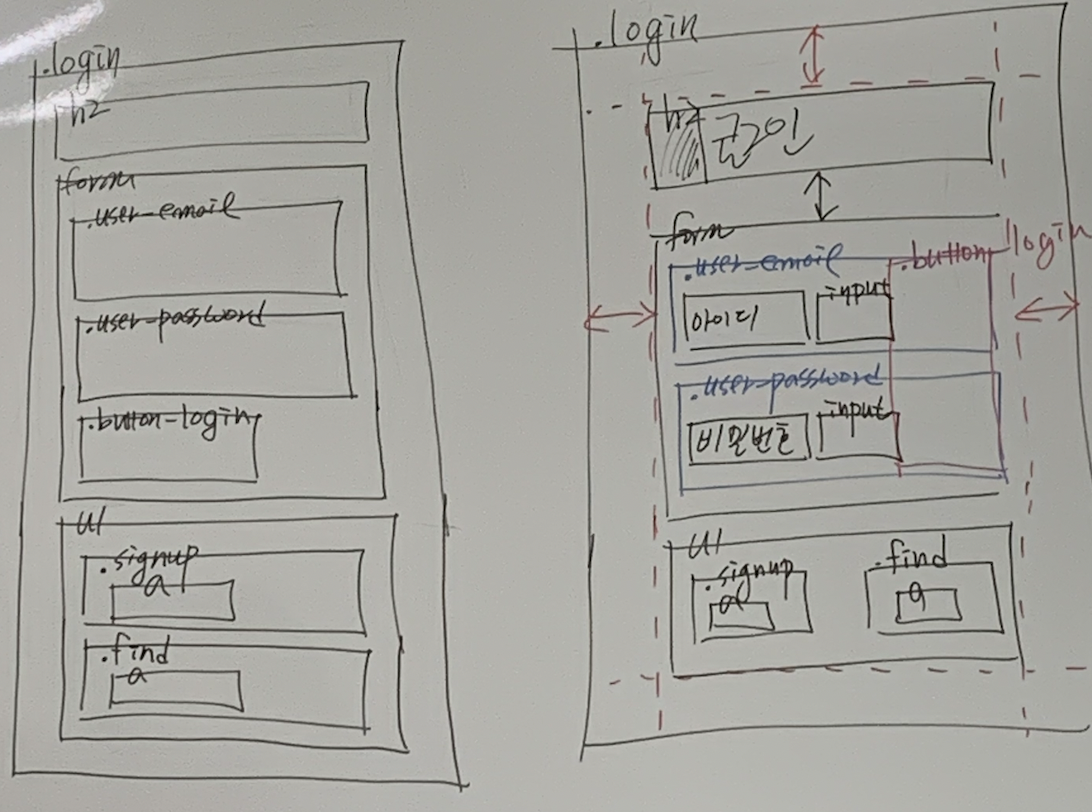 .login
h2
form
.user-email
.user-password
.button-login
ul
.signup
a
.find
a
.login
h2 로그인
form
.user-email
.button login
아이디
input
.user-password
비밀번호
input
ul
.signup
a
.find
a